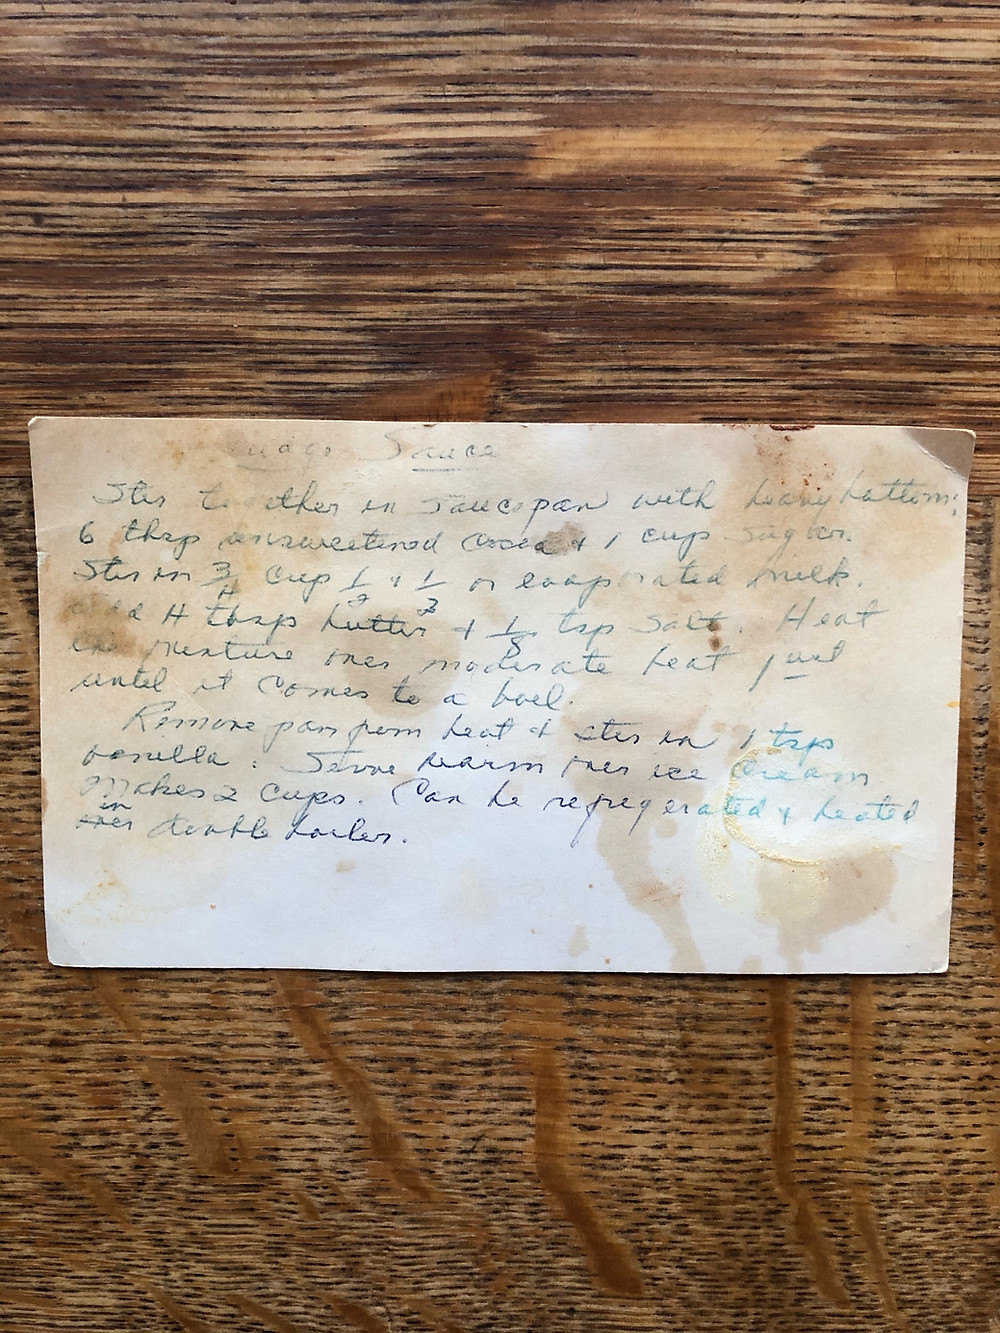 Fudge Sauce
Stir together in saucepan with heavy bottom:
6 tbsp unsweetened cocoa + 1 cup sugar.
Stir in 3/4 cup 1/2 + 1/2 or evaporated milk.
Add 4 tbsp butter + 1/8 tsp salt. Heat
the mixture over moderate heat just
until it comes to a boil.
Remove pan from heat & stir in 1 tsp
vanilla. Serve warm over ice cream
Makes 2 cups. Can be refrigerated & heated
in double boiler.